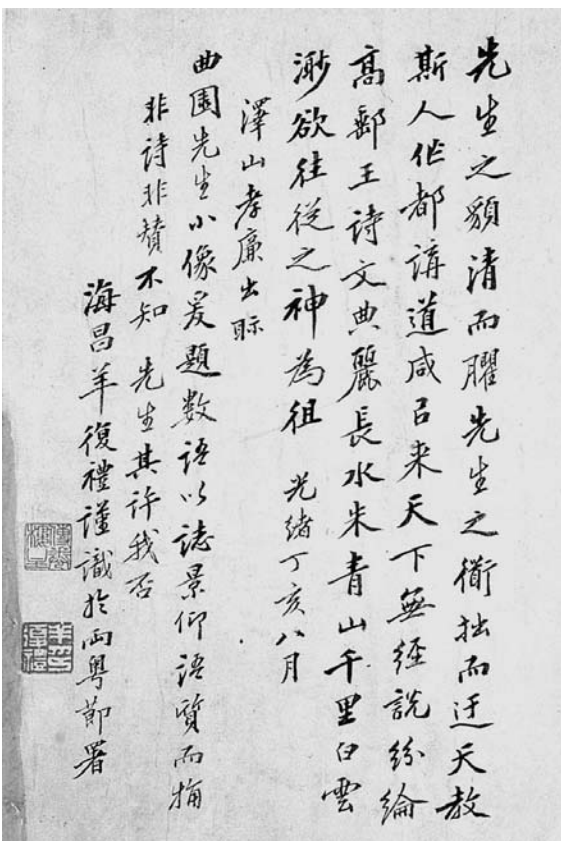 先生之貌清而臞先生之術拙而迂天教
斯人作都講道咸㠯来天下無經說紛綸
高郵王詩文典麗長水朱青山千里白雲
渺欲往從之神為徂 光緒丁亥八月
澤山孝廉出眎
曲園先生小像爰題數語以誌景仰語質而觕
非詩非贊不知 先生其許我否
海昌羊復禮謹識於兩粵節署